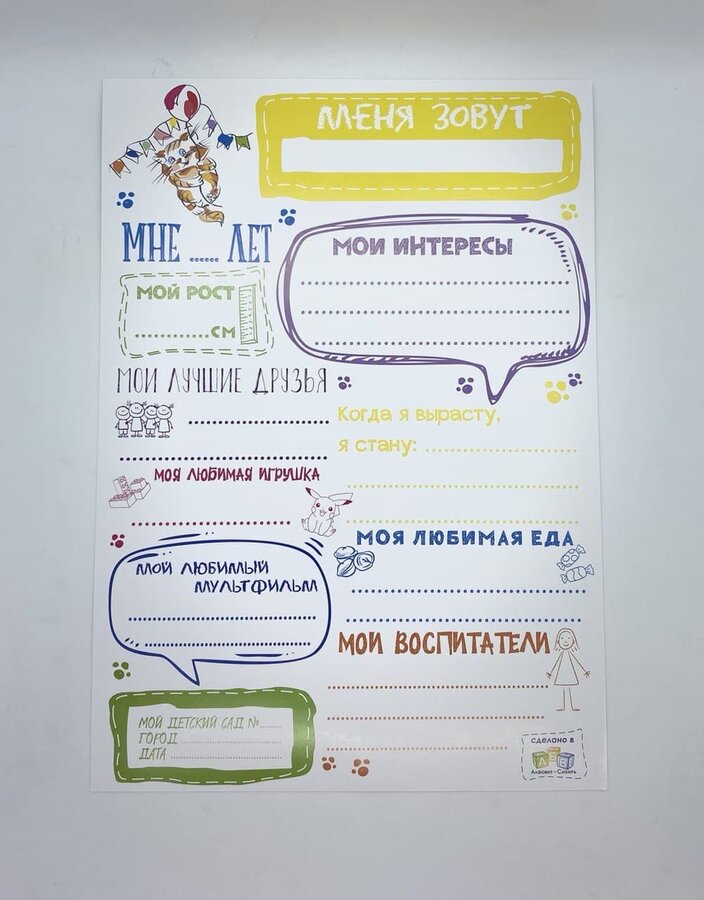 МЕНЯ ЗОВУТ
МНЕ ...... ЛЕТ
МОЙ РОСТ
............СМ
МОИ ИНТЕРЕСЫ
МОИ ЛУЧШИЕ ДРУЗЬЯ
Когда я вырасту,
я стану: ..............................
МОЯ ЛЮБИМАЯ ИГРУШКА
МОЯ ЛЮБИМАЯ ЕДА
МОЙ ЛЮБИМЫЙ
МУЛЬТФИЛЬМ
МОИ ВОСПИТАТЕЛИ
МОЙ ДЕТСКИЙ САД №........
ГОРОД ..............................
ДАТА ..............................
сделано в
Алфавит - Сибирь